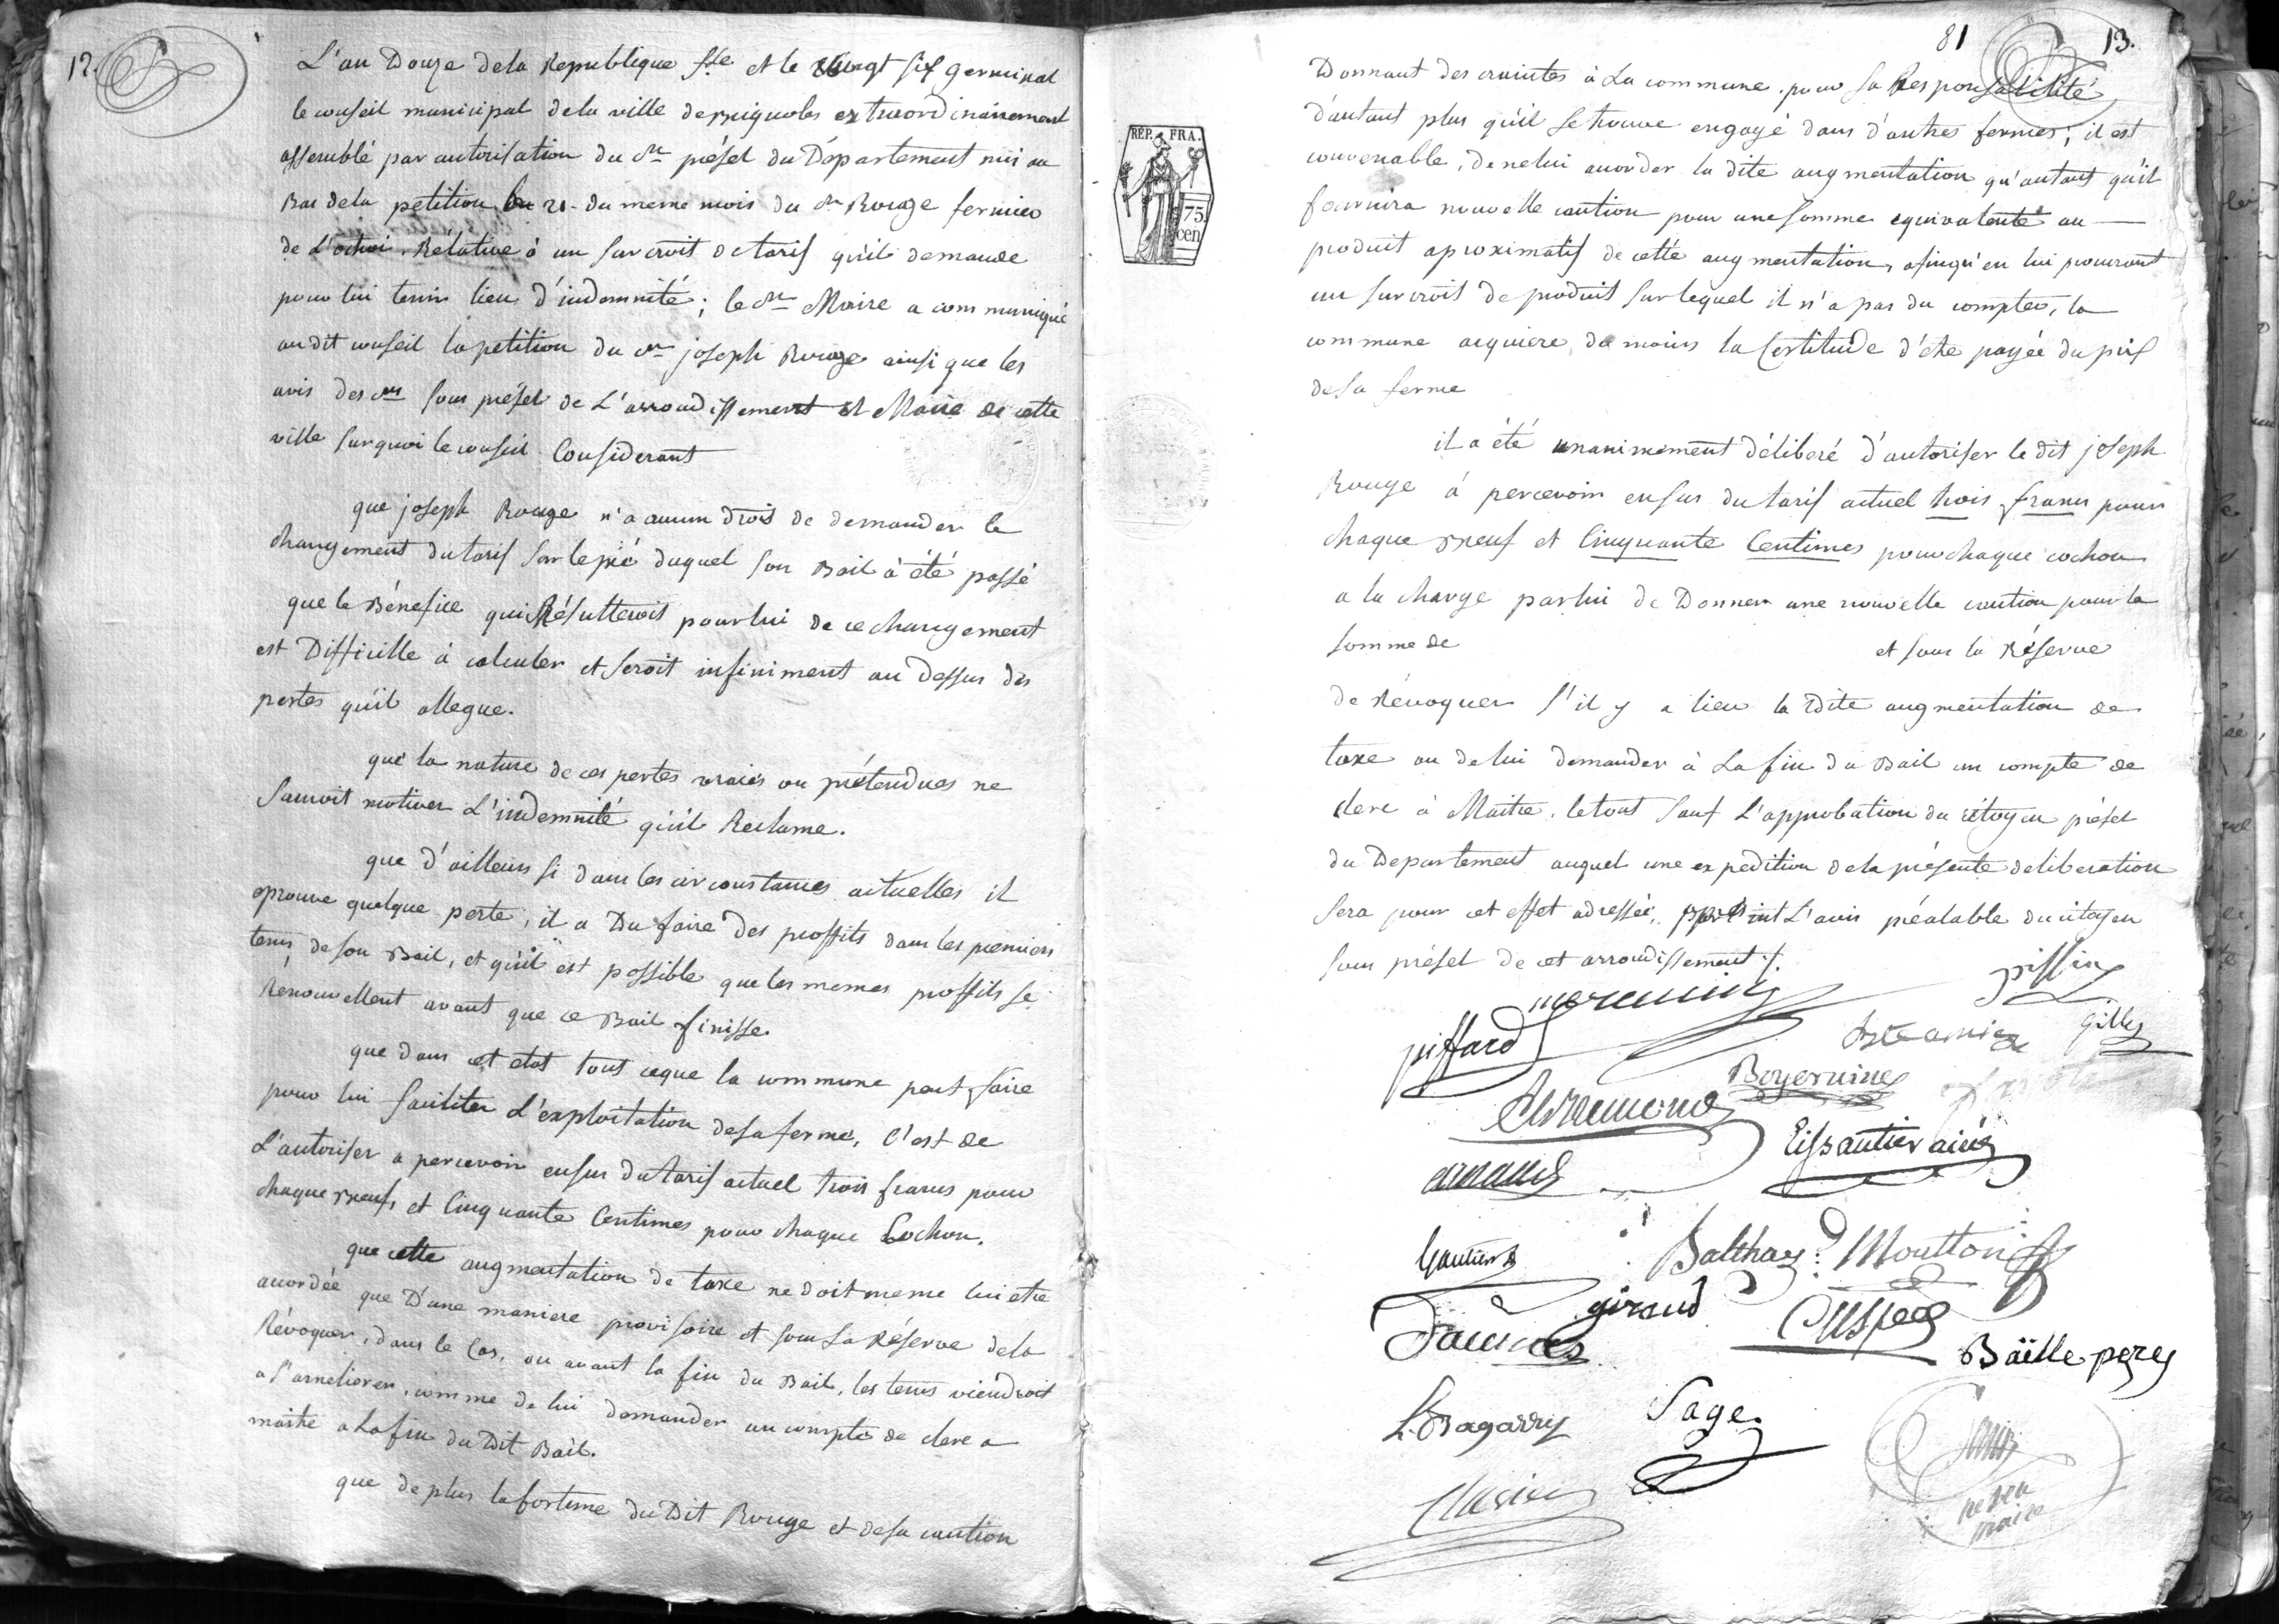 12.
L'an Douze de la Republique f.se et le vingt six germinal
le conseil municipal de la ville de Brignoles extraordinairement
assemblé par autorisation du c.en préfet du Département mis au
Bas de la petition du 21 du meme mois du c.en Rouge fermier
de L'octroi. Rélative à un surcroit de tarif qu'il demande
pour lui tenir lieu d'indemnité; le c.en Maire a communiqué
au dit conseil la petition du c.en joseph Rouge ainsi que les
avis des c.ens sous préfet de L'arrondissement et Maire de cette
ville sur quoi le conseil Considerant
que joseph Rouge n'a aucun droit de demander le
changement du tarif sur le pié duquel son Bail à été passé
que le Bénefice qui Résulteroit pour lui de ce changement
est Difficille à calculer et seroit infiniment au dessus des
pertes qu'il allegue.
que la nature de ces pertes vraies ou prétendues ne
sauroit motiver L'indemnité qu'il Reclame.
que d'ailleurs si dans les circonstances actuelles il
eprouve quelque perte, il a Du faire des proffits dans les premiers
tems de son Bail, et qu'il est possible que les memes proffits se
Renouvellent avant que ce Bail finisse.
que dans cet etat tout ce que la commune peut faire
pour lui faciliter L'exploitation de sa ferme, C'est de
L'autoriser a percevoir en sus du tarif actuel trois francs pour
chaque Bœuf, et Cinquante Centimes pour chaque Cochon.
que cette augmentation de taxe ne doit meme lui etre
accordée que D'une maniere provisoire et sous La Réserve de la
Révoquer, dans le Cas, ou avant la fin du Bail, les tems viendroit
a s'ameliorer, comme de lui demander un compte de clerc a
maitre a La fin du Dit Bail.
que de plus la fortune du Dit Rouge et de sa caution
81
13.
REP. FRA.
75
cen
Donnant des craintes à La commune, pour sa Responsabilité
d'autant plus qu'il se trouve engagé dans d'autres fermes; il est
convenable, de ne lui accorder la dite augmentation qu'autant qu'il
fournira nouvelle caution pour une somme equivalente au
produit aproximatif de cette augmentation, afin qu'en lui procurant
un surcroit de produit sur lequel il n'a pas du compter, la
commune acquiere du moins la Certitude d'etre payée du prix
de sa ferme
il a été unanimement déliberé d'autoriser le dit joseph
Rouge à percevoir en sus du tarif actuel trois francs pour
chaque Bœuf et Cinquante Centimes pour chaque cochon
a la charge par lui de Donner une nouvelle caution pour la
somme de et sous la Réserve
de Révoquer s'il y a lieu la dite augmentation de
taxe ou de lui demander à La fin du Bail un compte de
clerc à Maitre, le tout sauf L'approbation du citoyen préfet
du Departement auquel une expedition de la présente deliberation
sera pour cet effet adressée, L'avis préalable du citoyen
sous préfet de cet arrondissement.
piffard
gilles
Boyer
arnaud
Eissautier ainé
Gautier
Balthaz.d Moutton
giraud
Baïlle pere
Bagarry
Sage.
maire